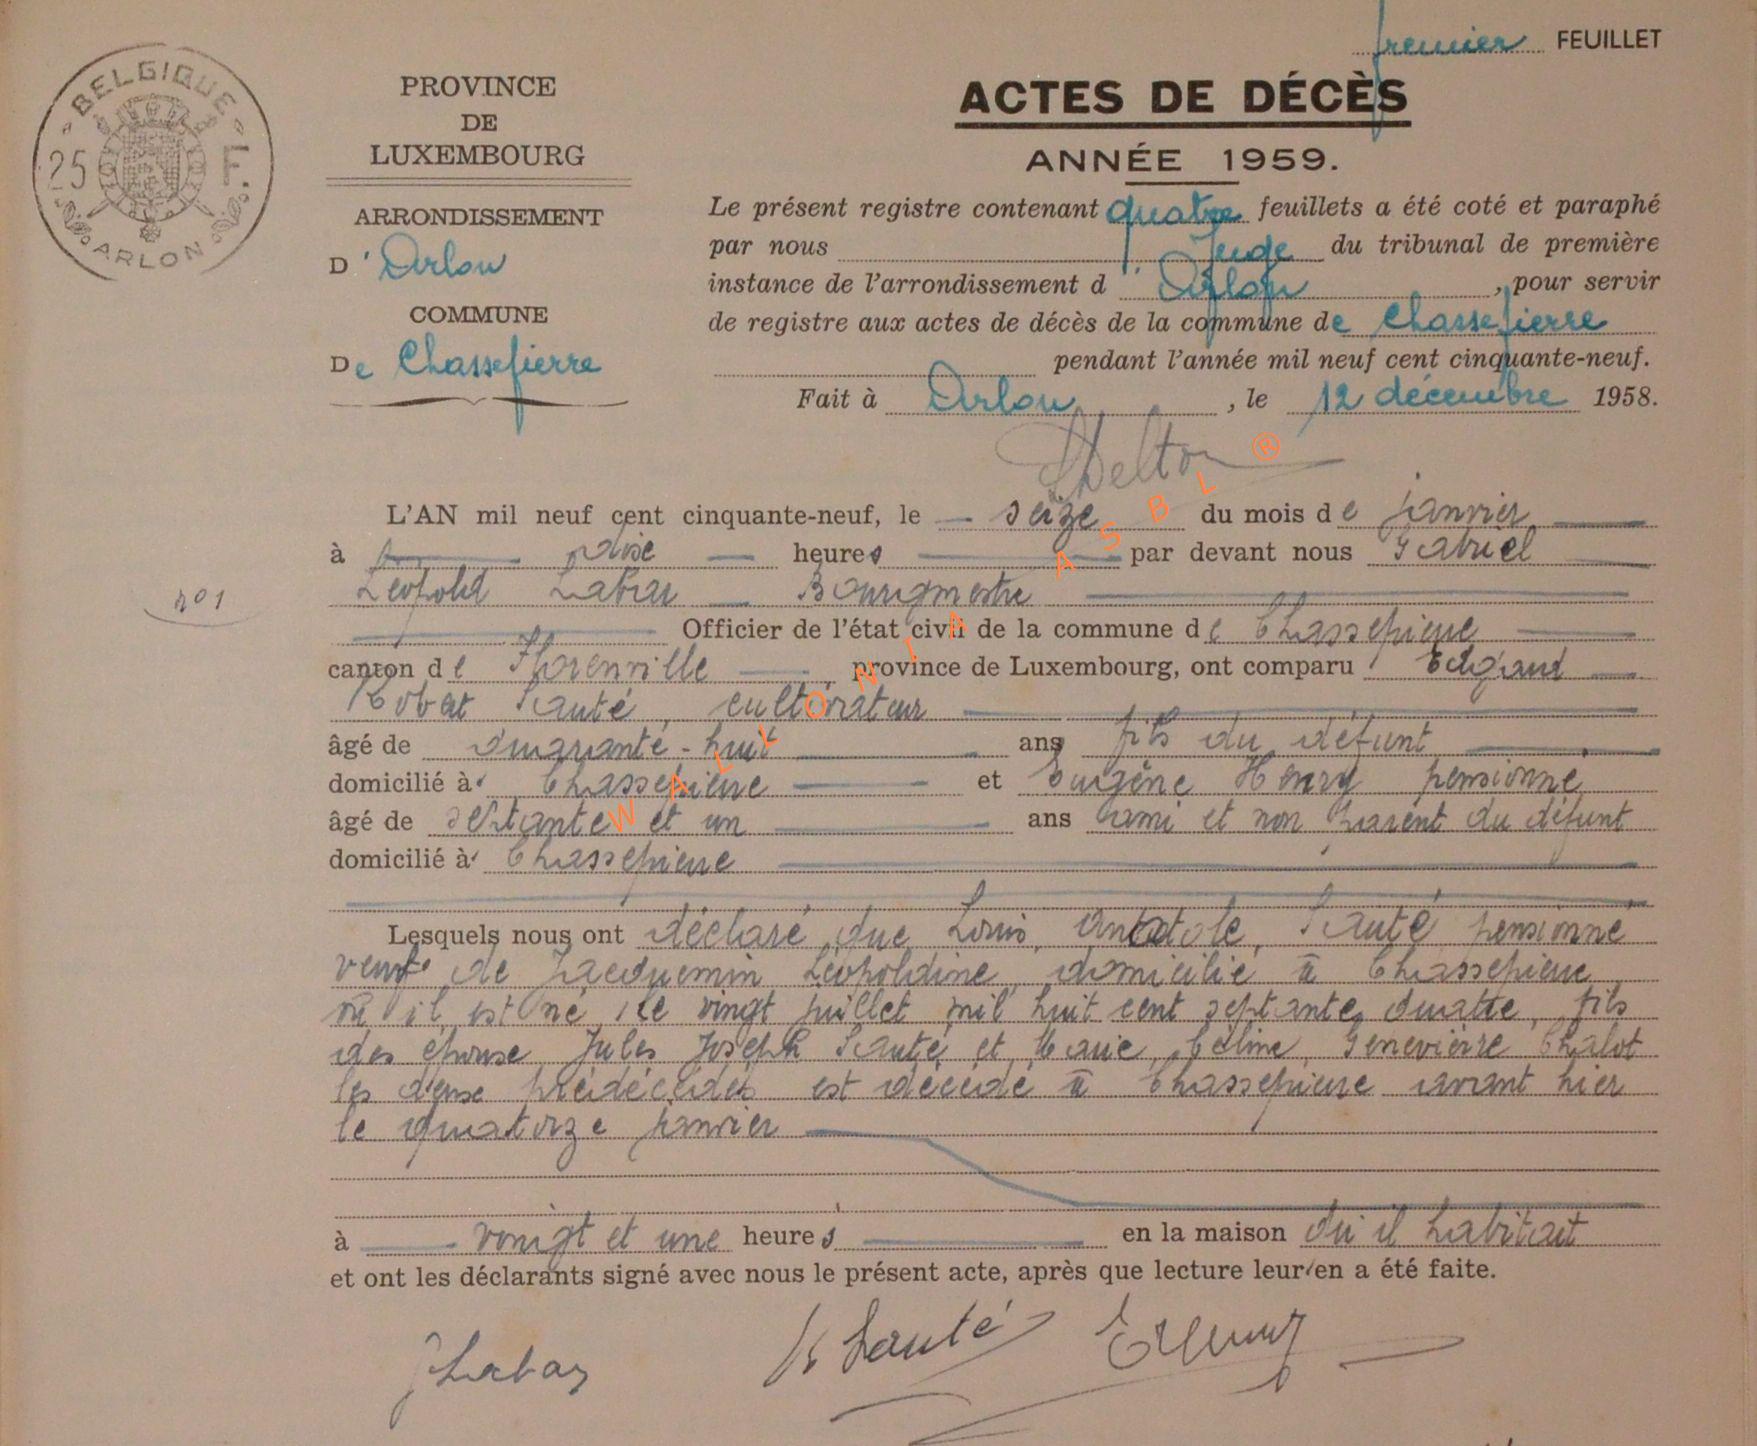 premier FEUILLET
BELGIQUE
25 F.
ARLON
PROVINCE
DE
LUXEMBOURG
ARRONDISSEMENT
D'Arlon
COMMUNE
De Chassepierre
ACTES DE DÉCÈS
ANNÉE 1959.
Le présent registre contenant quatre feuillets a été coté et paraphé
par nous Juge du tribunal de première
instance de l'arrondissement d'Arlon, pour servir
de registre aux actes de décès de la commune de Chassepierre
pendant l'année mil neuf cent cinquante-neuf.
Fait à Arlon, le 12 décembre 1958.
WALLONIA ASBL ®
n° 1
L'AN mil neuf cent cinquante-neuf, le seize du mois de janvier
à heures par devant nous Gabriel
Léopold Labar Bourgmestre
Officier de l'état civil de la commune de Chassepierre
canton de Florenville province de Luxembourg, ont comparu Edgard
Robert Santé, cultivateur
âgé de quarante-huit ans fils du défunt
domicilié à Chassepierre et Eugène Henry pensionné
âgé de septante et un ans ami et non parent du défunt
domicilié à Chassepierre
Lesquels nous ont déclaré que Louis, Anatole, Santé pensionné
veuf de Jacquemin Léopoldine, domicilié à Chassepierre
où il est né le vingt juillet mil huit cent septante quatre, fils
des épouse Jules Joseph Santé et Marie, Céline, Geneviève Chalot
les deux prédécédés est décédé à Chassepierre avant hier
le quatorze janvier
à vingt et une heures en la maison qu'il habitait
et ont les déclarants signé avec nous le présent acte, après que lecture leur en a été faite.
GLabar R Santé EHenry